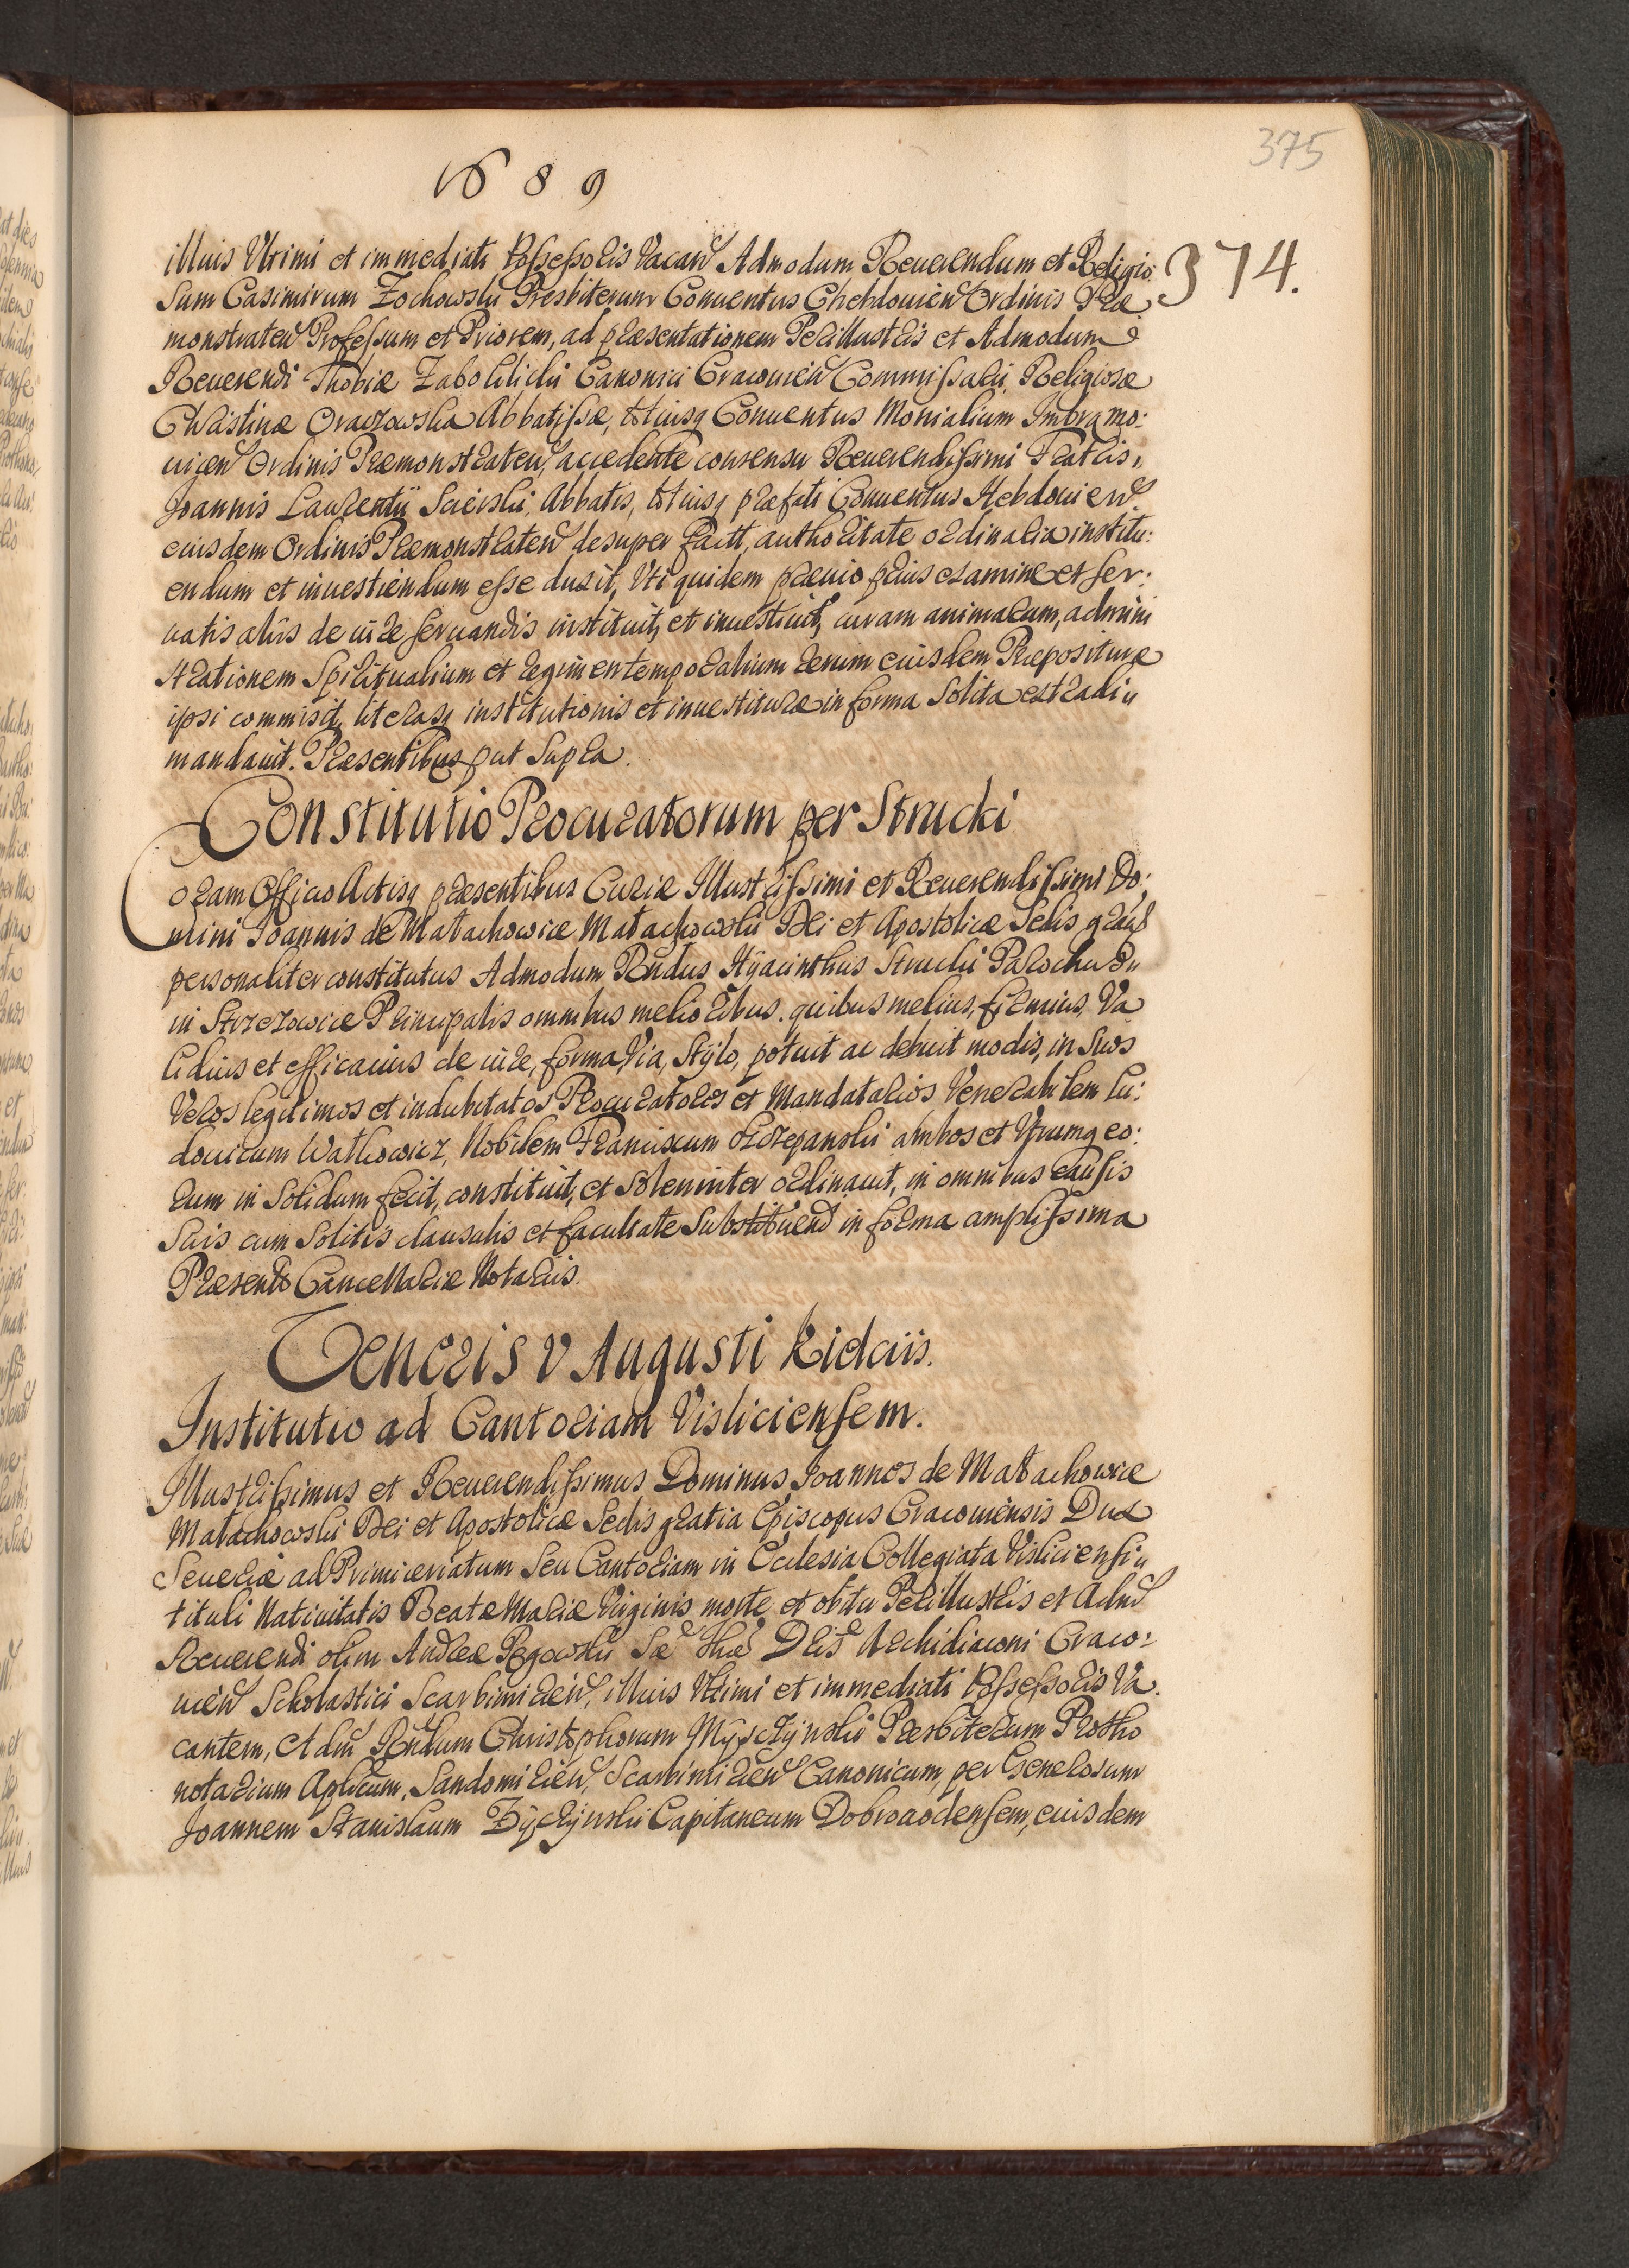 375
1689
374.
illius Vltimi et immediati Possessoris Vacan Admodum Reuerendum et Religio:
sum Casimirum Zochowski Presbiterum Conuentus Chebdouien Ordinis Præ
monstraten Professum et Priorem, ad præsentationem Perillustris et Admodum
Reuerendi Thobiæ Zaboklicki Canonici Cracouien Commissarii, Religiosæ
Christinæ Oraczowska Abbatissæ, totiusq Conuentus Monialium Imbramo:
uicen Ordinis Præmonstraten, accedente consensu Reuerendissimi Fratris,
Joannis Laurentii Abbatis, totiusq præfati Conuentus Hebdouien
eiusdem Ordinis Præmonstraten desuper fact, authoritate ordinaria institu:
endum et inuestiendum esse duxit, Vti quidem præuio prius examine et ser:
uatis aliis de iure seruandis instituit, et inuestiuit, curam animarum, admini
strationem Spiritualium et regimen temporalium rerum eiusdem Præpositure
ipsi commisit, literasq institutionis et inuestituræ in forma solita extradi
mandauit. Præsentibus put supra.
Constitutio Procuratorum per Strucki
Coram Officio Actisq præsentibus Curiæ Illustrissimi et Reuerendissimi Do:
mini Joannis de Małachowice Małachowski Dei et Apostolicæ Sedis gratia
personaliter constitutus Admodum Rndus Hyacinthus Strucki Parochus
in Strzezowice Principalis omnibus melioribus. quibus melius, firmius, Va
lidius et efficacius de iure, forma, Via, Stylo, potuit ac debuit modis, in Suos
Veros legitimos et indubitatos Procuratores et Mandatarios Venerabilem Lu:
douicum Wathowicz, Nobilem Franciscum Szczepanski ambos et Vtrumq eo:
rum in Solidum fecit, constituit, et solenniter ordinauit, in omnibus causis
suis cum Solitis clausulis et facultate Substituend in forma amplissima
Præsent Cancellariæ Notariis.
Veneris V Augusti Kielciis.
Institutio ad Cantoriam Visliciensem.
Illustrissimus et Reuerendissimus Dominus Joannes de Małachowice
Małachowski Dei et Apostolicæ Sedis gratia Episcopus Cracouiensis Dux
Seueriæ ad Primiceriatum seu Cantoriam in Ecclesia Collegiata Visliciensi
tituli Natiuitatis Beatæ Mariæ Virginis morte et obitu Perillustris et Adm
Reuerendi olim Andreæ Pegowski Sæ Thæ Dris Archidiaconi Craco:
uien Scholastici Scarbimirien, illius Vltimi et immediati Possessoris Va
cantem, Adm Rndum Christophorum Myszczynski Præsbiterum Protho
notarium Aplicum, Sandomirien, Scarbimirien Canonicum, per Generosum
Joannem Stanislaum Capitaneum eiusdem